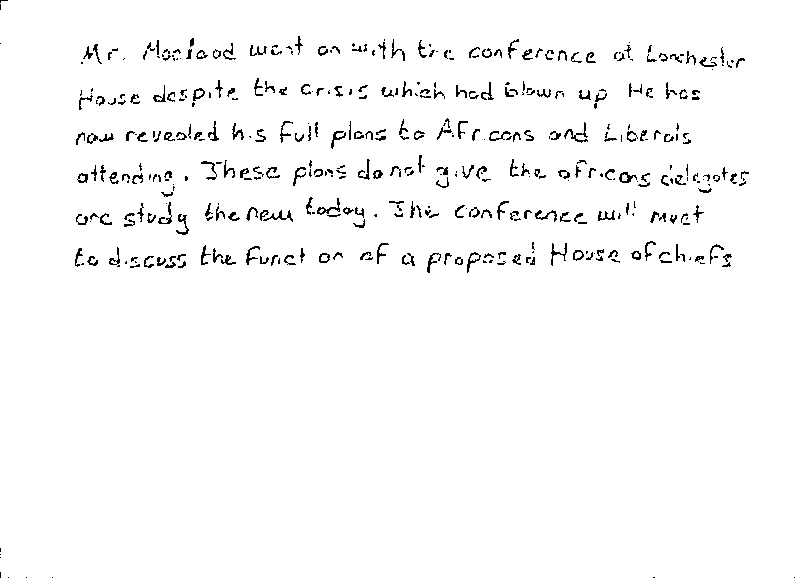 Mr. Macleod went on with the conference at Lanchester
House despite the crisis which had blown up He has
now revealed his full plans to Africans and Liberals
attending. These plans do not give the africans delegates
are study the new today. The conference will meet
to discuss the function of a proposed House of chiefs